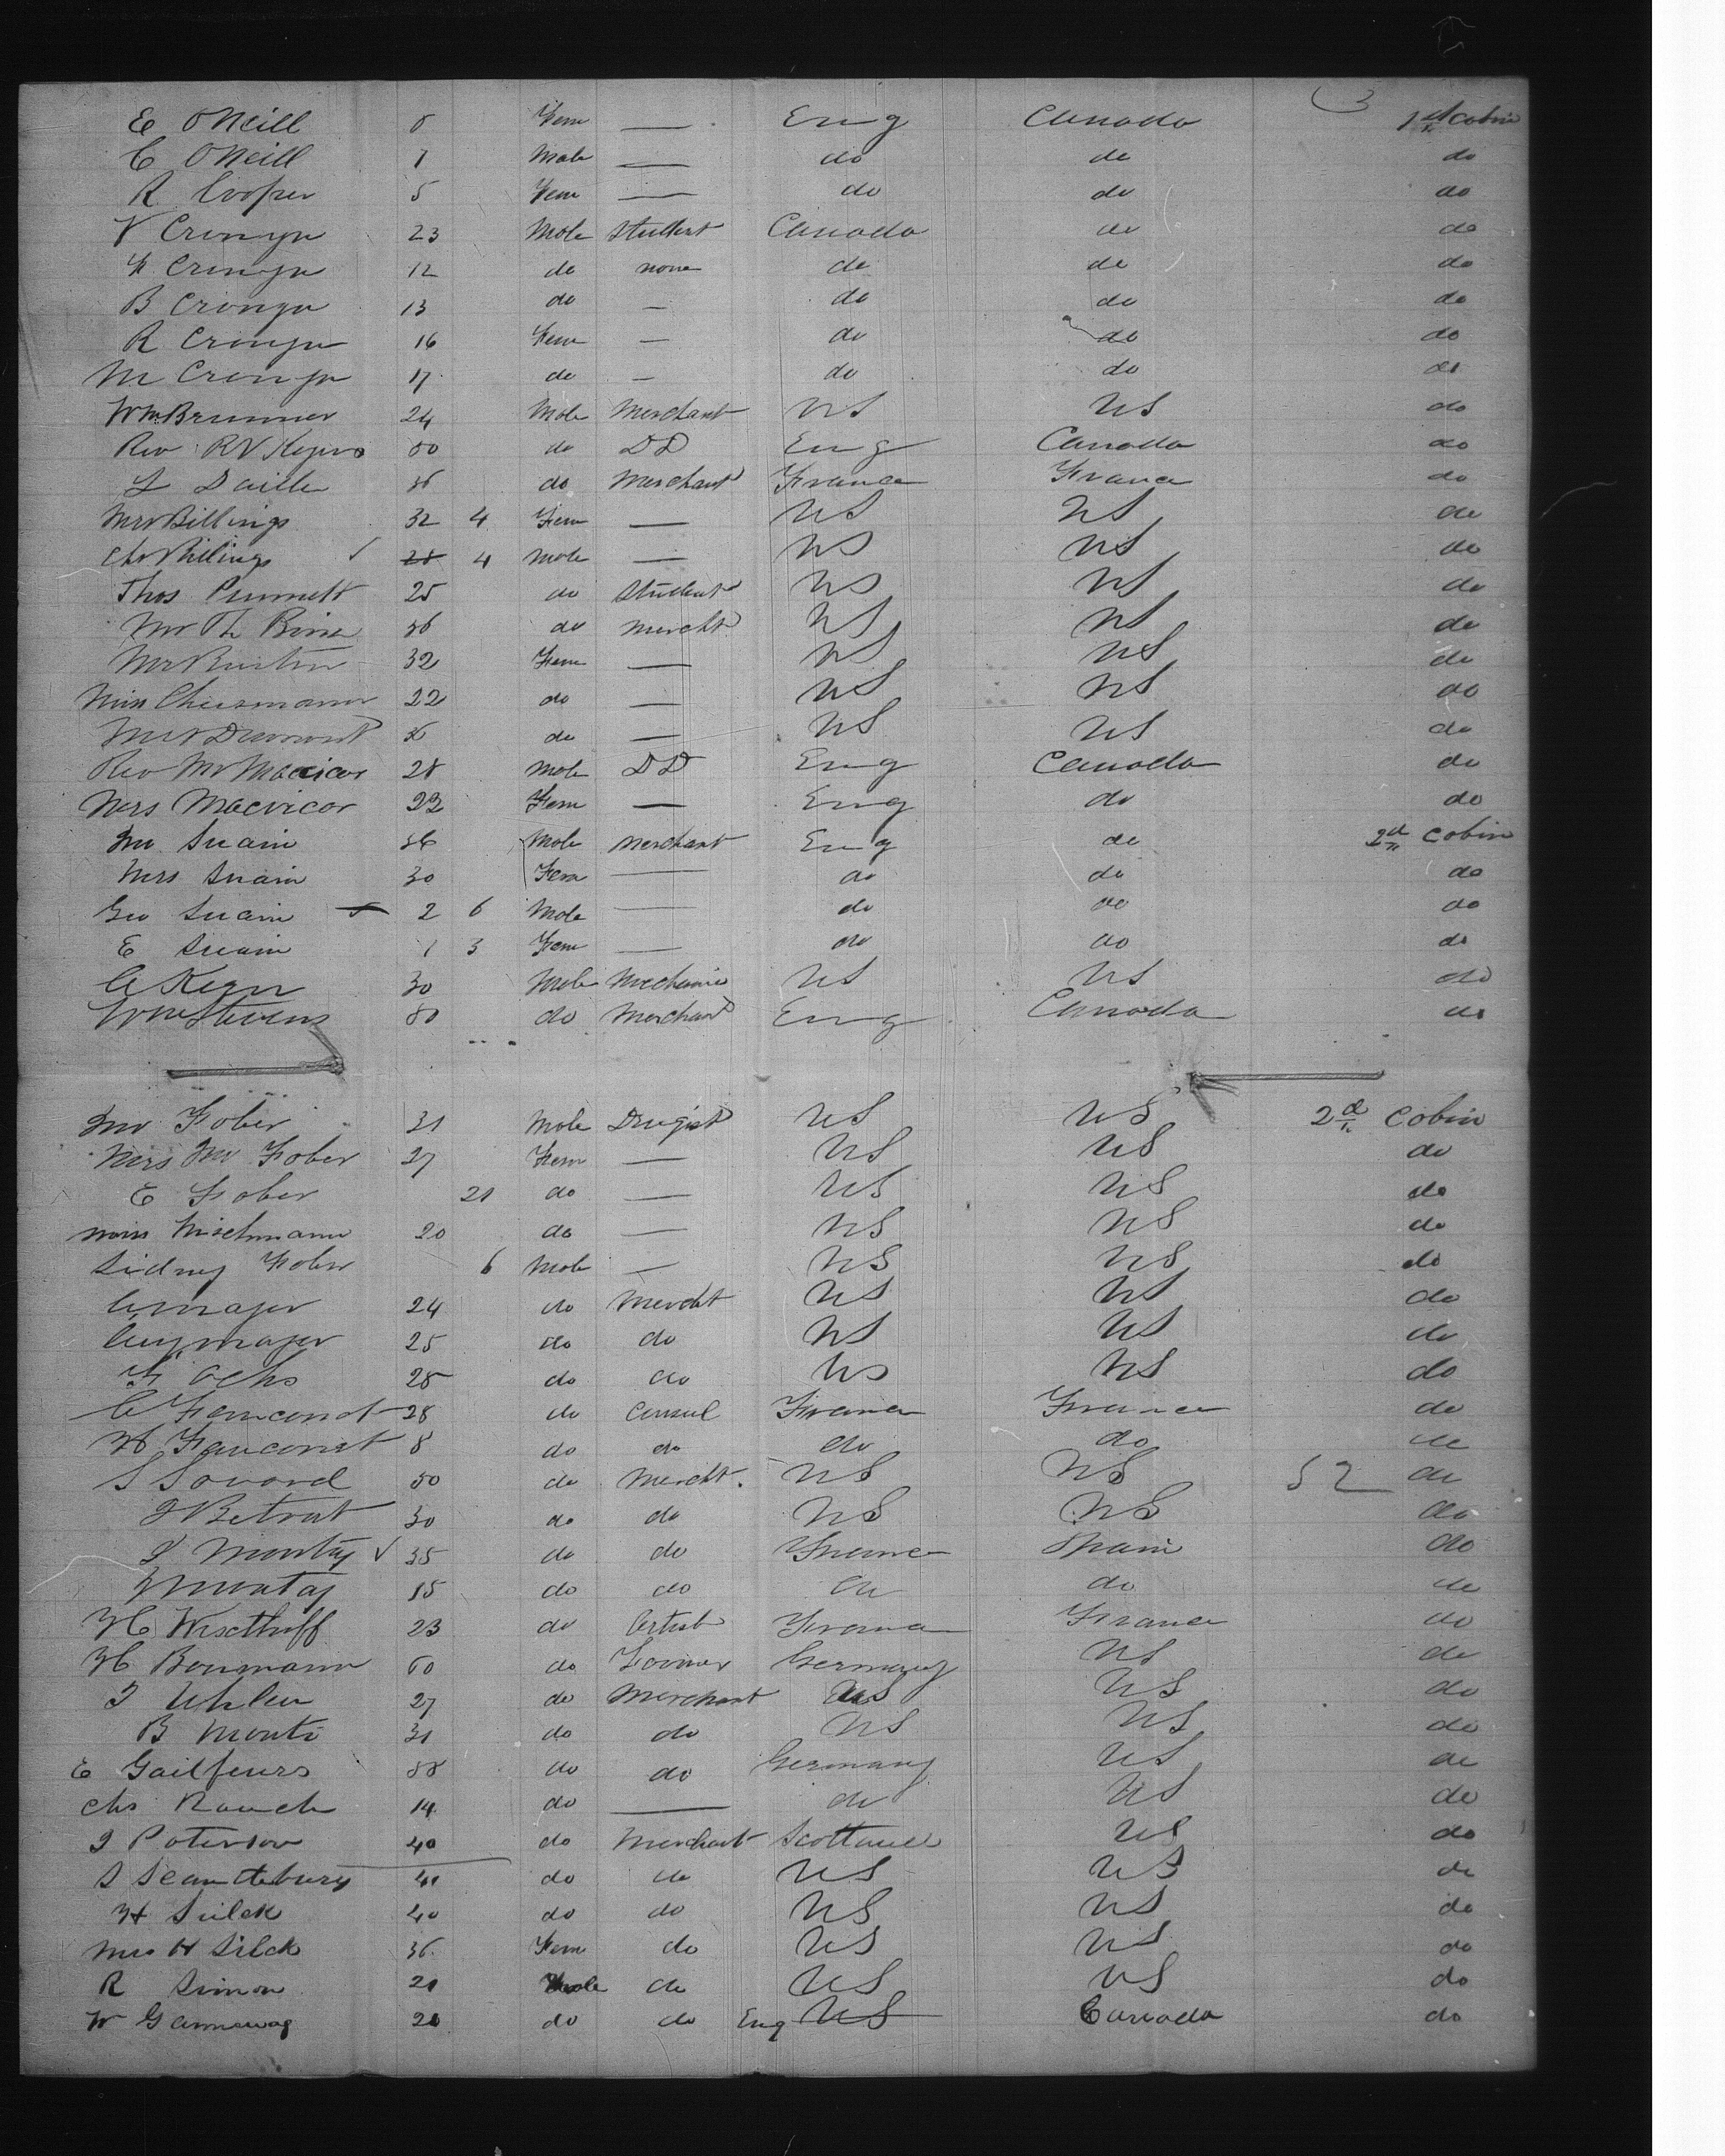 3
E O'Neill 8 Fem — Eng Canada 1st Cabin
C O'Neill 7 Male — do do do
R Cooper 5 Fem — do do do
V Cronyn 23 Male Student Canada do do
H Cronyn 12 do none do do do
B Cronyn 13 do — do do do
R Cronyn 16 Fem — do do do
M Cronyn 17 do — do do do
Wm Brunner 24 Male Merchant US US do
Rev RV Rogers 50 do DD Eng Canada do
L Daille 36 do Merchant France France do
Mrs Billings 32 4 Fem — US US do
Chs Billings 4 Male — US US do
Thos 25 do Student US US do
Mr Th 36 do mercht US US do
32 Fem — US US do
Miss Cheesmann 22 do — US US do
Mrs 36 do — US US do
Rev Mr Macvicar 28 Male DD Eng Canada do
Mrs Macvicar 22 Fem — Eng do do
Mr Suain 36 Male Merchant Eng do 2d Cabin
Mrs Suain 30 Fem — do do do
Geo Suain 2 6 Male — do do do
E Suain 1 3 Fem — do do do
30 Male Mechanic US US do
Wm Stevens 50 do Merchant Eng Canada do
Mr Fober 31 Male Drugist US US 2d Cabin
Mrs Mr Fober 27 Fem — US US do
E Fober 21 do — US US do
Miss 20 do — US US do
Sidney Fober 6 Male — US US do
C mayer 24 do Mercht US US do
Aug mayer 25 do do US US do
F Ochs 25 do do US US do
28 do Consul France France do
8 do do do do do
S Sovard 50 do Mercht. US US 52 do
J Betrut 30 do do US US do
J Montay 35 do do France Spain do
Montay 15 do do do do do
H Westhoff 23 do Artist France France do
H Bonmann 60 do Farmer Germany US do
J Uhlein 27 do Merchant US US do
B Monti 31 do do US US do
E Gailfeurs 58 do do Germany US do
Chs Rauch 14 do — do US do
J Paterson 40 do Merchant Scotland US do
S 40 do do US US do
H Silck 40 do do US US do
Mrs H Silck 36 Fem do US US do
R Simon 21 Male do US US do
W Gannaway 20 do do Eng US Canada do